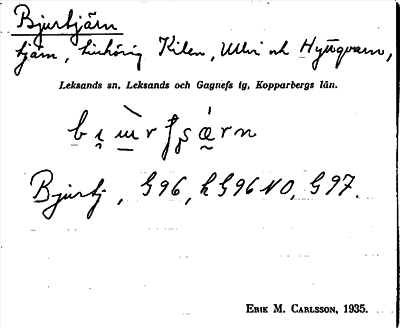 Bjurtjärn
tjärn, tillhörig Kilen, Ullvi och Hytiqvarn,
Leksands sn, Leksands och Gagnefs tg, Kopparbergs län.
Bjurtj, G96, h G96 NO, G97.
ERIK M. CARLSSON, 1935.